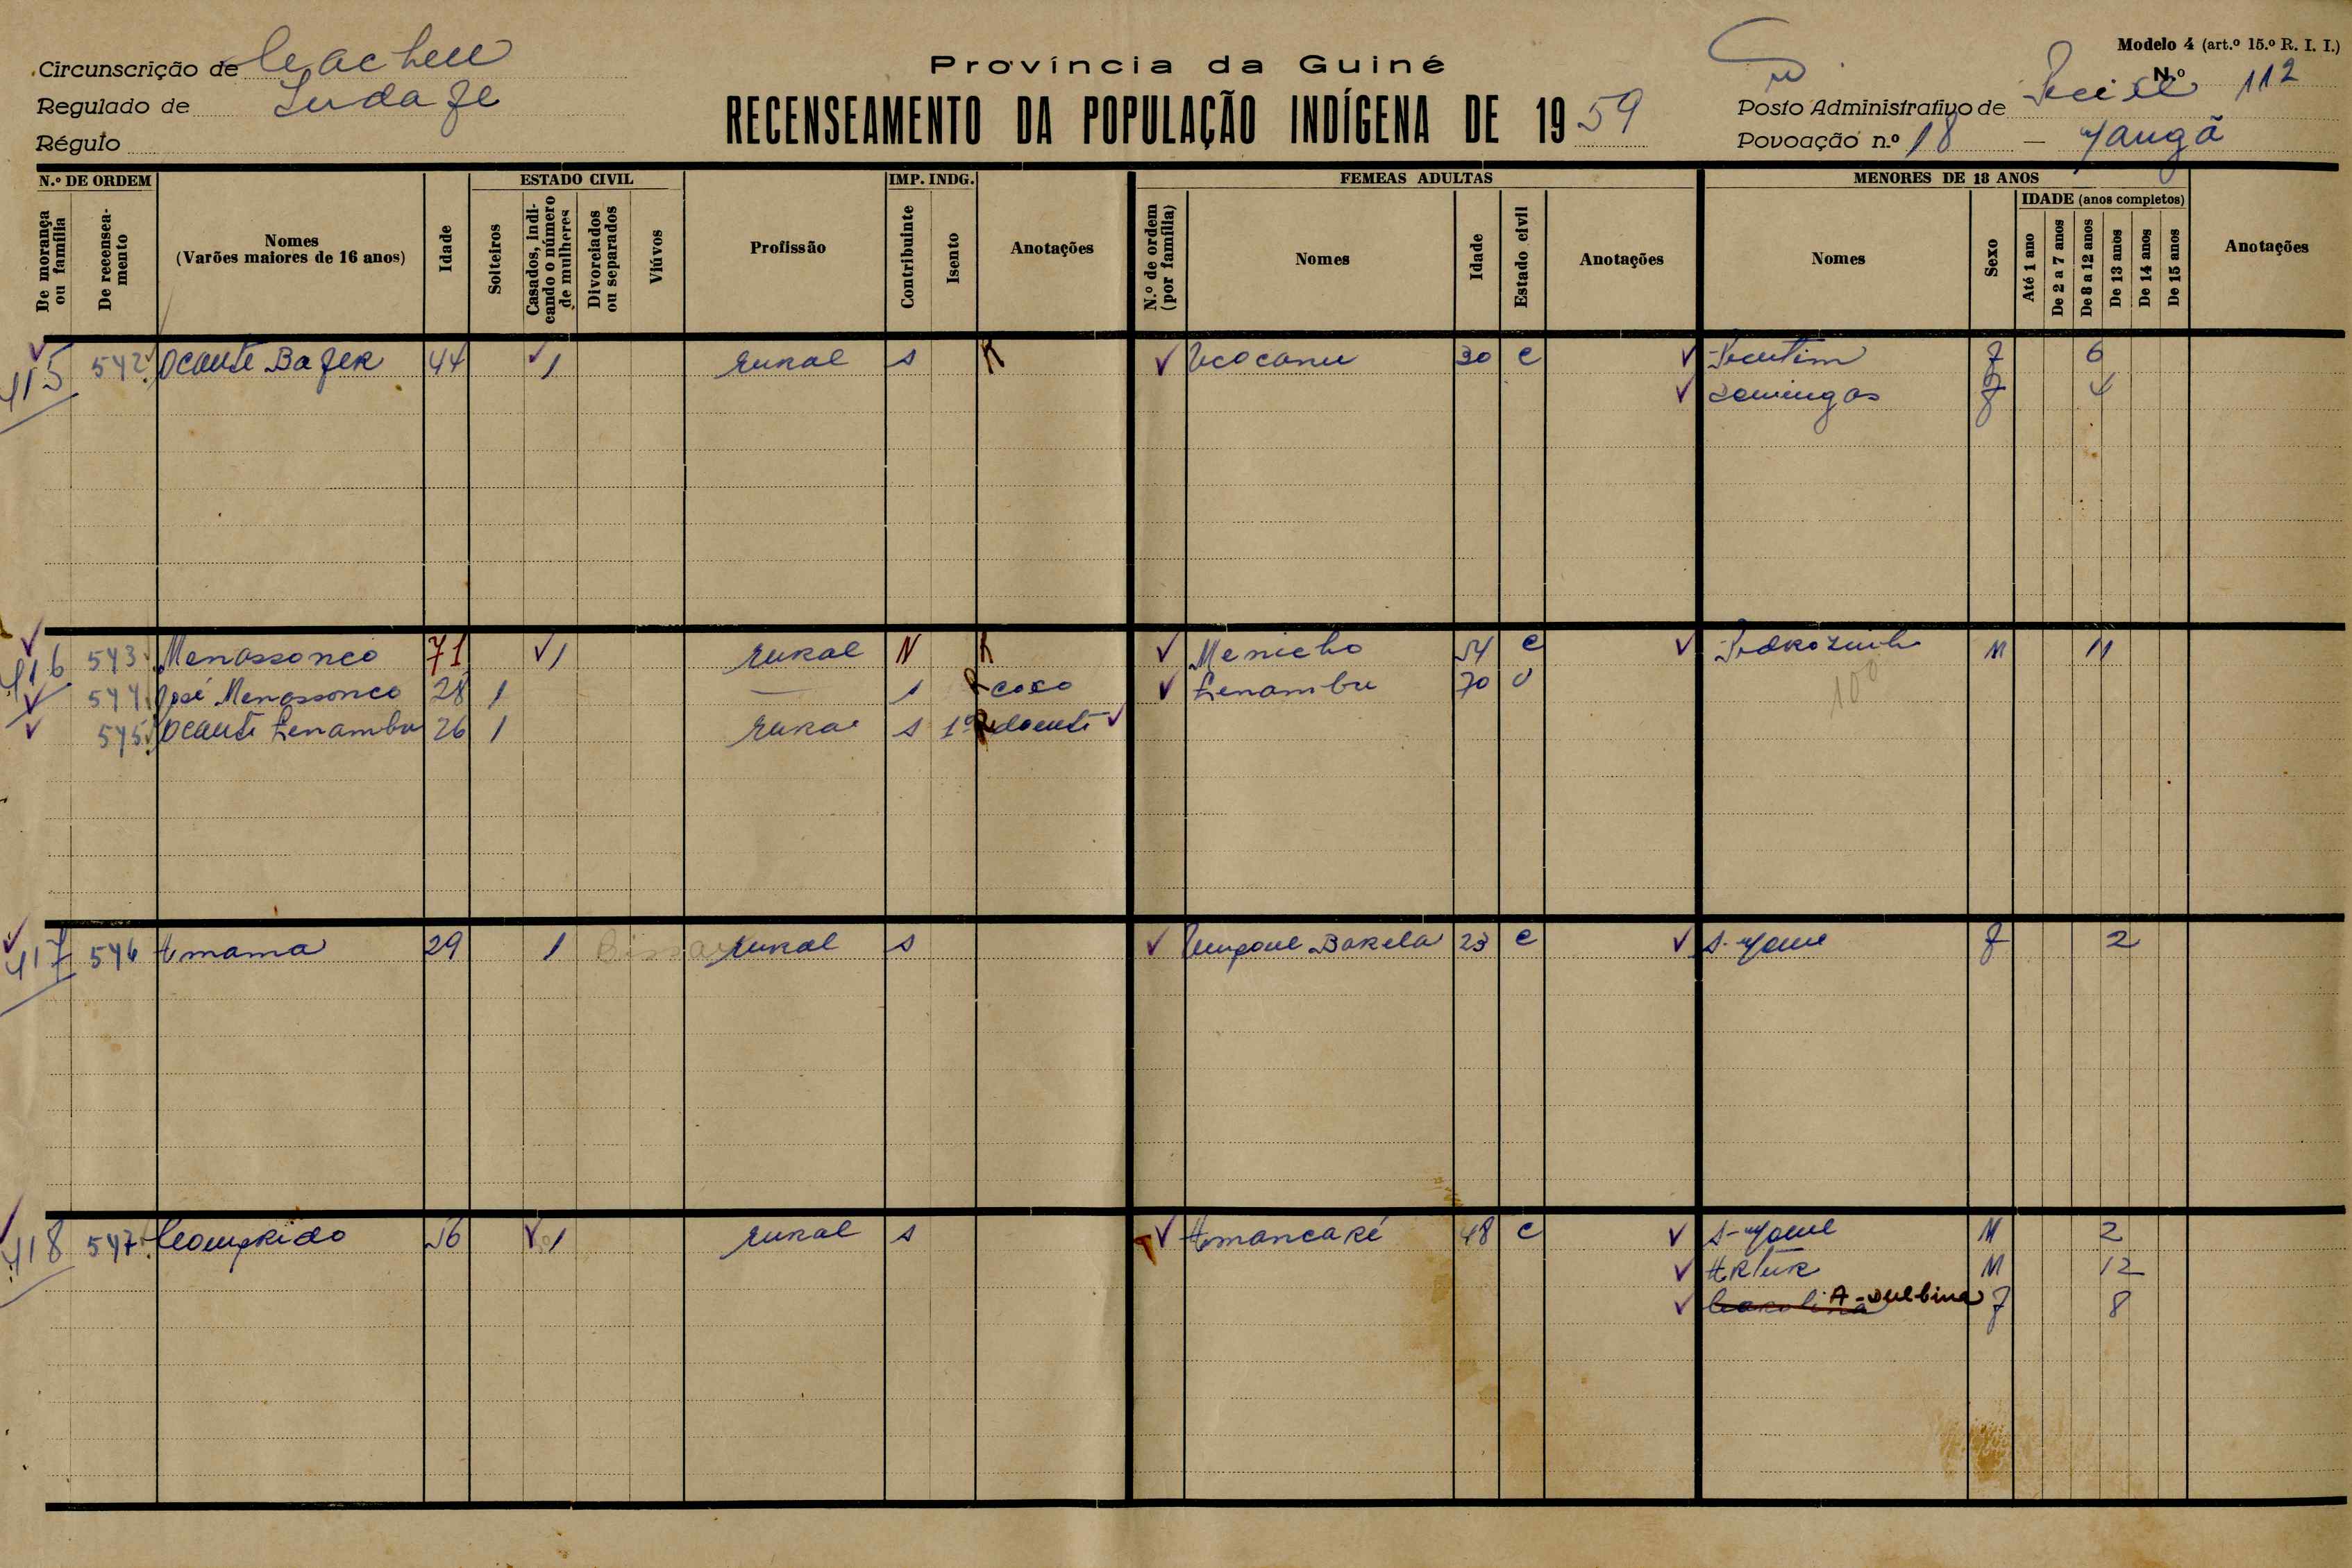 Modelo 4 (art.º 15.º R. I. I.)
Nº 112
Província da Guiné
RECENSEAMENTO DA POPULAÇÃO INDÍGENA DE 1959
Circunscrição de Cacheu
Regulado de
Régulo
Posto Administrativo de
Povoação n.º 18 —
N.º DE ORDEM
De morança ou família
De recenseamento
Nomes
(Varões maiores de 16 anos)
Idade
ESTADO CIVIL
Solteiros
Casados, indicando o número de mulheres
Divorciados ou separados
Viúvos
Profissão
IMP. INDG.
Contribuinte
Isento
Anotações
FEMEAS ADULTAS
N.º de ordem (por família)
Nomes
Idade
Estado civil
Anotações
MENORES DE 18 ANOS
Nomes
Sexo
IDADE (anos completos)
Até 1 ano
De 2 a 7 anos
De 8 a 12 anos
De 13 anos
De 14 anos
De 15 anos
Anotações
415 542 Ocante Bafer 44 1 rural s R Ucocanu 30 C F 6
Domingas F 4
416 543 Menassonco 71 1 rural N R Menicho 54 C M 11
544 José Menassonco 28 1 — 1 R coxo Lenambu 70 V 100
545 Ocante Lenambu 26 1 rural s 1º R doente
417 546 Amama 29 1 Bissau rural s 23 C F 2
418 547 Comprido 56 1 rural s Amancaré 48 C M 2
Artur M 12
Carolina F 8